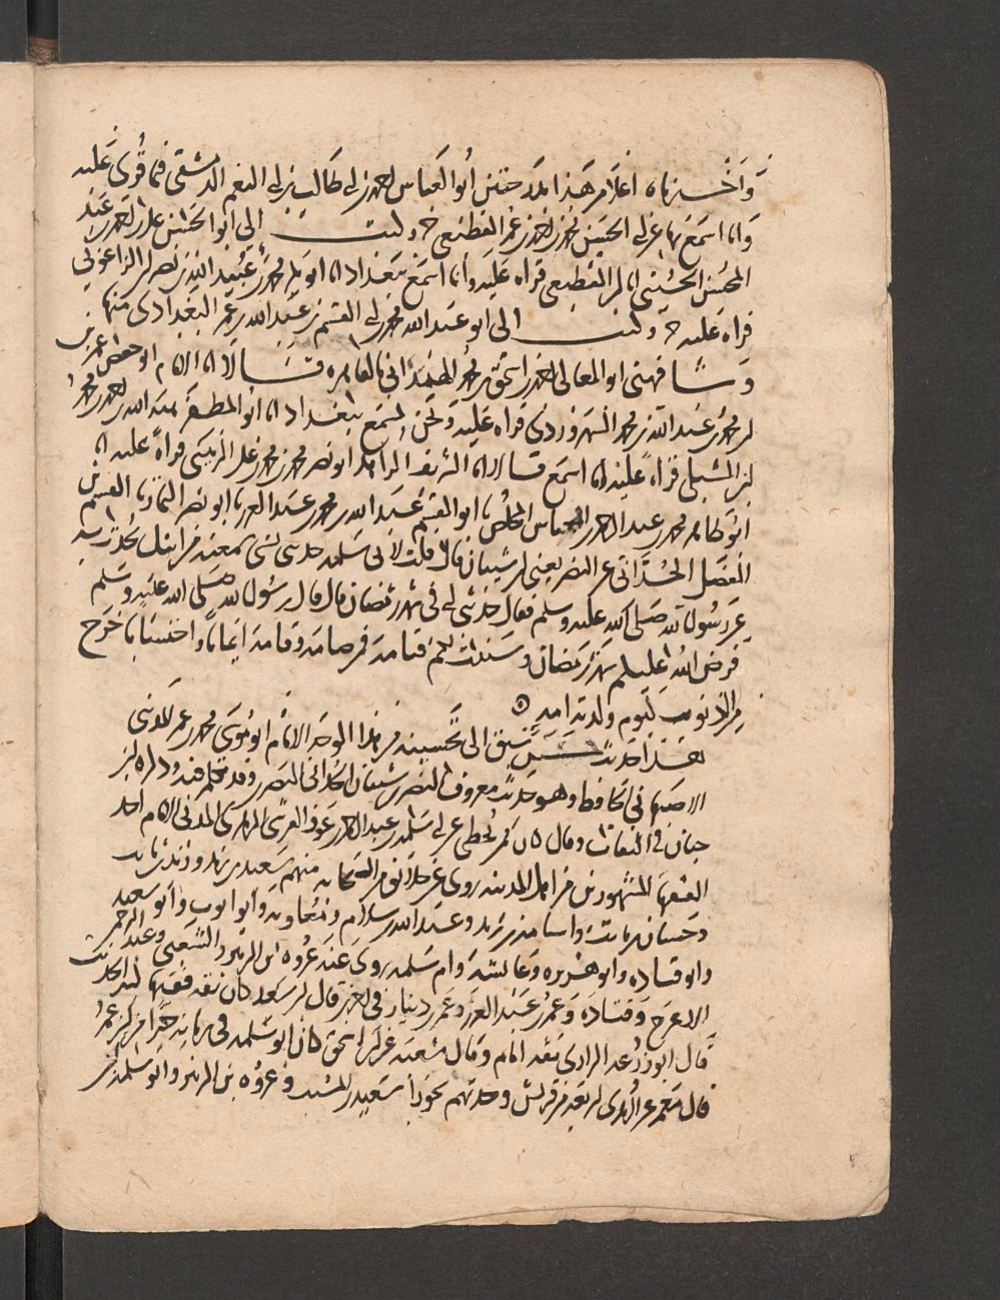 وأخبرناه أعلا من هذا بدرجتين أبو العباس أحمد بن أبي طالب بن أبي النعم الدمشقي فيما قرئ عليه
وأنا أسمع بها عن أبي الحسن محمد بن أحمد بن عمر القطيعي ح وكتب إلي أبو الحسن علي بن أحمد بن عبد
المحسن الحسيني انا ابن القطيعي قراه عليه وأنا أسمع ببغداد انا أبو بكر محمد بن عبيد الله بن نصر ابن الزاغوني
قراه عليه ح وكتب إلي أبو عبد الله محمد بن أبي القسم بن عبد الله بن عمر البغدادي منها
وشافهني أبو المعالي أحمد بن إسحق بن محمد الهمذاني بالقاهره قالا انا الإمام أبو حفص عمر بن
محمد بن عبد الله بن محمد السهروردي قراه عليه ونحن نسمع ببغداد انا أبو المظفر هبه الله بن أحمد بن محمد
ابن الشبلي قراءً عليه انا أسمع قالا انا الشريف الزاهد أبو نصر محمد بن محمد بن علي الزينبي قراءً عليه انا
أبو طاهر محمد بن عبد الرحمن بن العباس المخلص نا أبو القسم عبد الله بن محمد بن عبد العزيز نا أبو نصر التمار نا القسم بن
الفضل الحداني عن النضر يعني ابن شيبان قال قلت لأبي سلمه حدثني بشي سمعته من أبيك يحدث به
عن رسول الله صلى الله عليه وسلم فقال حدثني أبي في شهر رمضان قال قال رسول الله صلى الله عليه وسلم
فرض الله عليكم شهر رمضان وسننت لكم قيامه فمن صامه وقامه إيمانا واحتسابا خرج
من الذنوب كيوم ولدته أمه ⊙
هذا حديث حسن سبق إلى تحسينه من هذا الوجه الإمام أبو موسى محمد بن عمر المديني
الاصبهاني الحافظ وهو حديث معروف بالنضر بن شيبان الحداني البصري وقد تكلم فيه وذكره ابن
حبان في الثقات وقال كان ممن يخطي عن أبي سلمه بن عبد الرحمن بن عوف القرشي الزهري المدني الإمام أحد
الفقهاء المشهورين من أهل المدينه روى عن خلائق من الصحابه منهم سعيد بن زيد وزيد بن ثابت
وحسان بن ثابت وأسامه بن زيد وعبد الله بن سلام ومعاويه وأبو أيوب وأبو سعيد
وأبو قتاده وأبو هريره وعايشه وأم سلمه روى عنه عروه ابن الزبير والشعبي وعبد الرحمن
الاعرج وقتاده وعمر بن عبد العزيز وعمرو بن دينار في آخرين قال ابن سعد كان ثقه فقيها كثير الحديث
قال أبو زرعه الرازي ثقه إمام وقال شعبه عن أبي إسحق كان أبو سلمه في زمانه خيرا من ابن عمر
قال معمر عن الزهري اربعه من قريش وجدتهم بحوراً سعيد بن المسيب وعروه بن الزبير وأبو سلمه بن